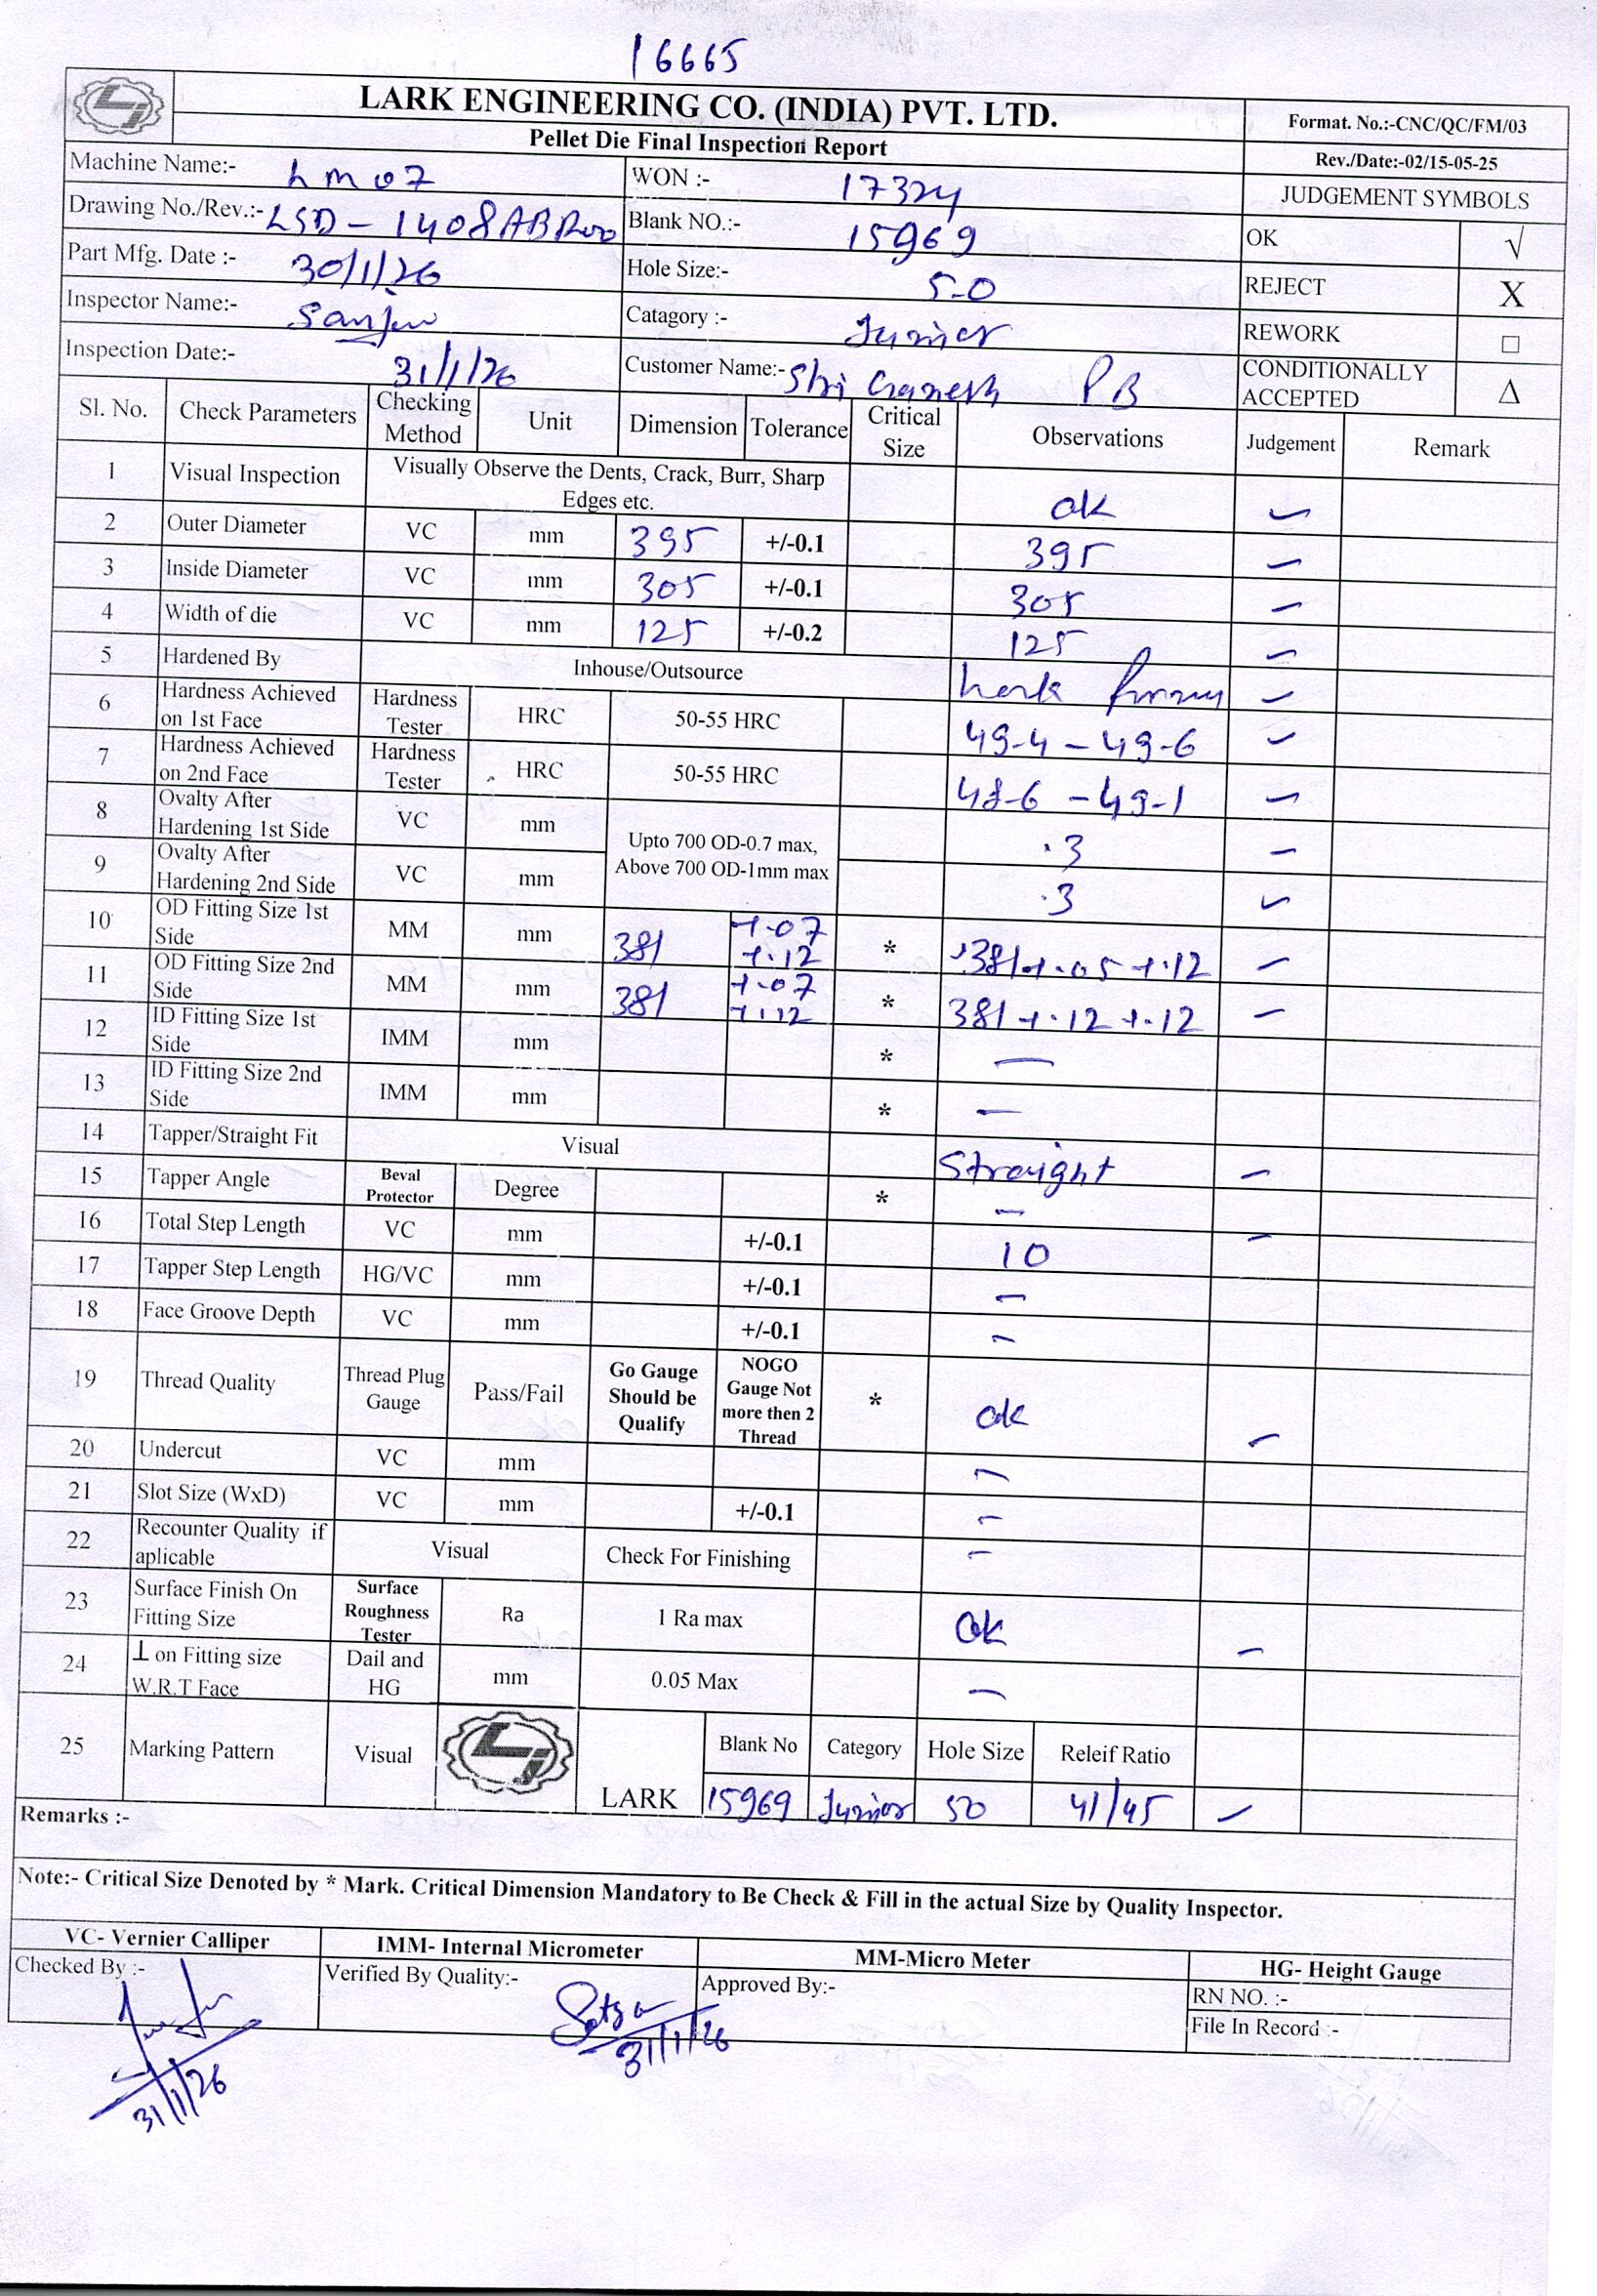 16665
LARK ENGINEERING CO. (INDIA) PVT. LTD.
Pellet Die Final Inspection Report
Format. No.:-CNC/QC/FM/03
Rev./Date:-02/15-05-25
Machine Name:- LM07 WON :- 17324 JUDGEMENT SYMBOLS
Drawing No./Rev.:- LSD-1408ABR00 Blank NO.:- 15969 OK √
Part Mfg. Date :- 30/1/26 Hole Size:- 5-0 REJECT X
Inspector Name:- Catagory :- Junior REWORK □
Inspection Date:- 31/1/26 Customer Name:- Shri Ganesh PB CONDITIONALLY ACCEPTED Δ
Sl. No. Check Parameters Checking Method Unit Dimension Tolerance Critical Size Observations Judgement Remark
1 Visual Inspection Visually Observe the Dents, Crack, Burr, Sharp Edges etc. ok ✓
2 Outer Diameter VC mm 395 +/-0.1 395 ✓
3 Inside Diameter VC mm 305 +/-0.1 305 ✓
4 Width of die VC mm 125 +/-0.2 125 ✓
5 Hardened By Inhouse/Outsource Lark ✓
6 Hardness Achieved on 1st Face Hardness Tester HRC 50-55 HRC 49-4 - 49-6 ✓
7 Hardness Achieved on 2nd Face Hardness Tester HRC 50-55 HRC 48-6 - 49-1 ✓
8 Ovalty After Hardening 1st Side VC mm Upto 700 OD-0.7 max, Above 700 OD-1mm max .3 ✓
9 Ovalty After Hardening 2nd Side VC mm .3 ✓
10 OD Fitting Size 1st Side MM mm 381 +.07 +.12 * 381+.05 +.12 ✓
11 OD Fitting Size 2nd Side MM mm 381 +.07 +.12 * 381 +.12 +.12 ✓
12 ID Fitting Size 1st Side IMM mm * —
13 ID Fitting Size 2nd Side IMM mm * —
14 Tapper/Straight Fit Visual Straight ✓
15 Tapper Angle Beval Protector Degree * —
16 Total Step Length VC mm +/-0.1 10 ✓
17 Tapper Step Length HG/VC mm +/-0.1 —
18 Face Groove Depth VC mm +/-0.1 —
19 Thread Quality Thread Plug Gauge Pass/Fail Go Gauge Should be Qualify NOGO Gauge Not more then 2 Thread * ok ✓
20 Undercut VC mm —
21 Slot Size (WxD) VC mm +/-0.1 —
22 Recounter Quality if aplicable Visual Check For Finishing —
23 Surface Finish On Fitting Size Surface Roughness Tester Ra 1 Ra max ok ✓
24 ⊥ on Fitting size W.R.T Face Dail and HG mm 0.05 Max —
25 Marking Pattern Visual LARK Blank No Category Hole Size Releif Ratio
15969 Junior 50 41/45 ✓
Remarks :-
Note:- Critical Size Denoted by * Mark. Critical Dimension Mandatory to Be Check & Fill in the actual Size by Quality Inspector.
VC- Vernier Calliper IMM- Internal Micrometer MM-Micro Meter HG- Height Gauge
Checked By :- Verified By Quality:- Approved By:- RN NO. :-
File In Record :-
31/1/26
31/1/26